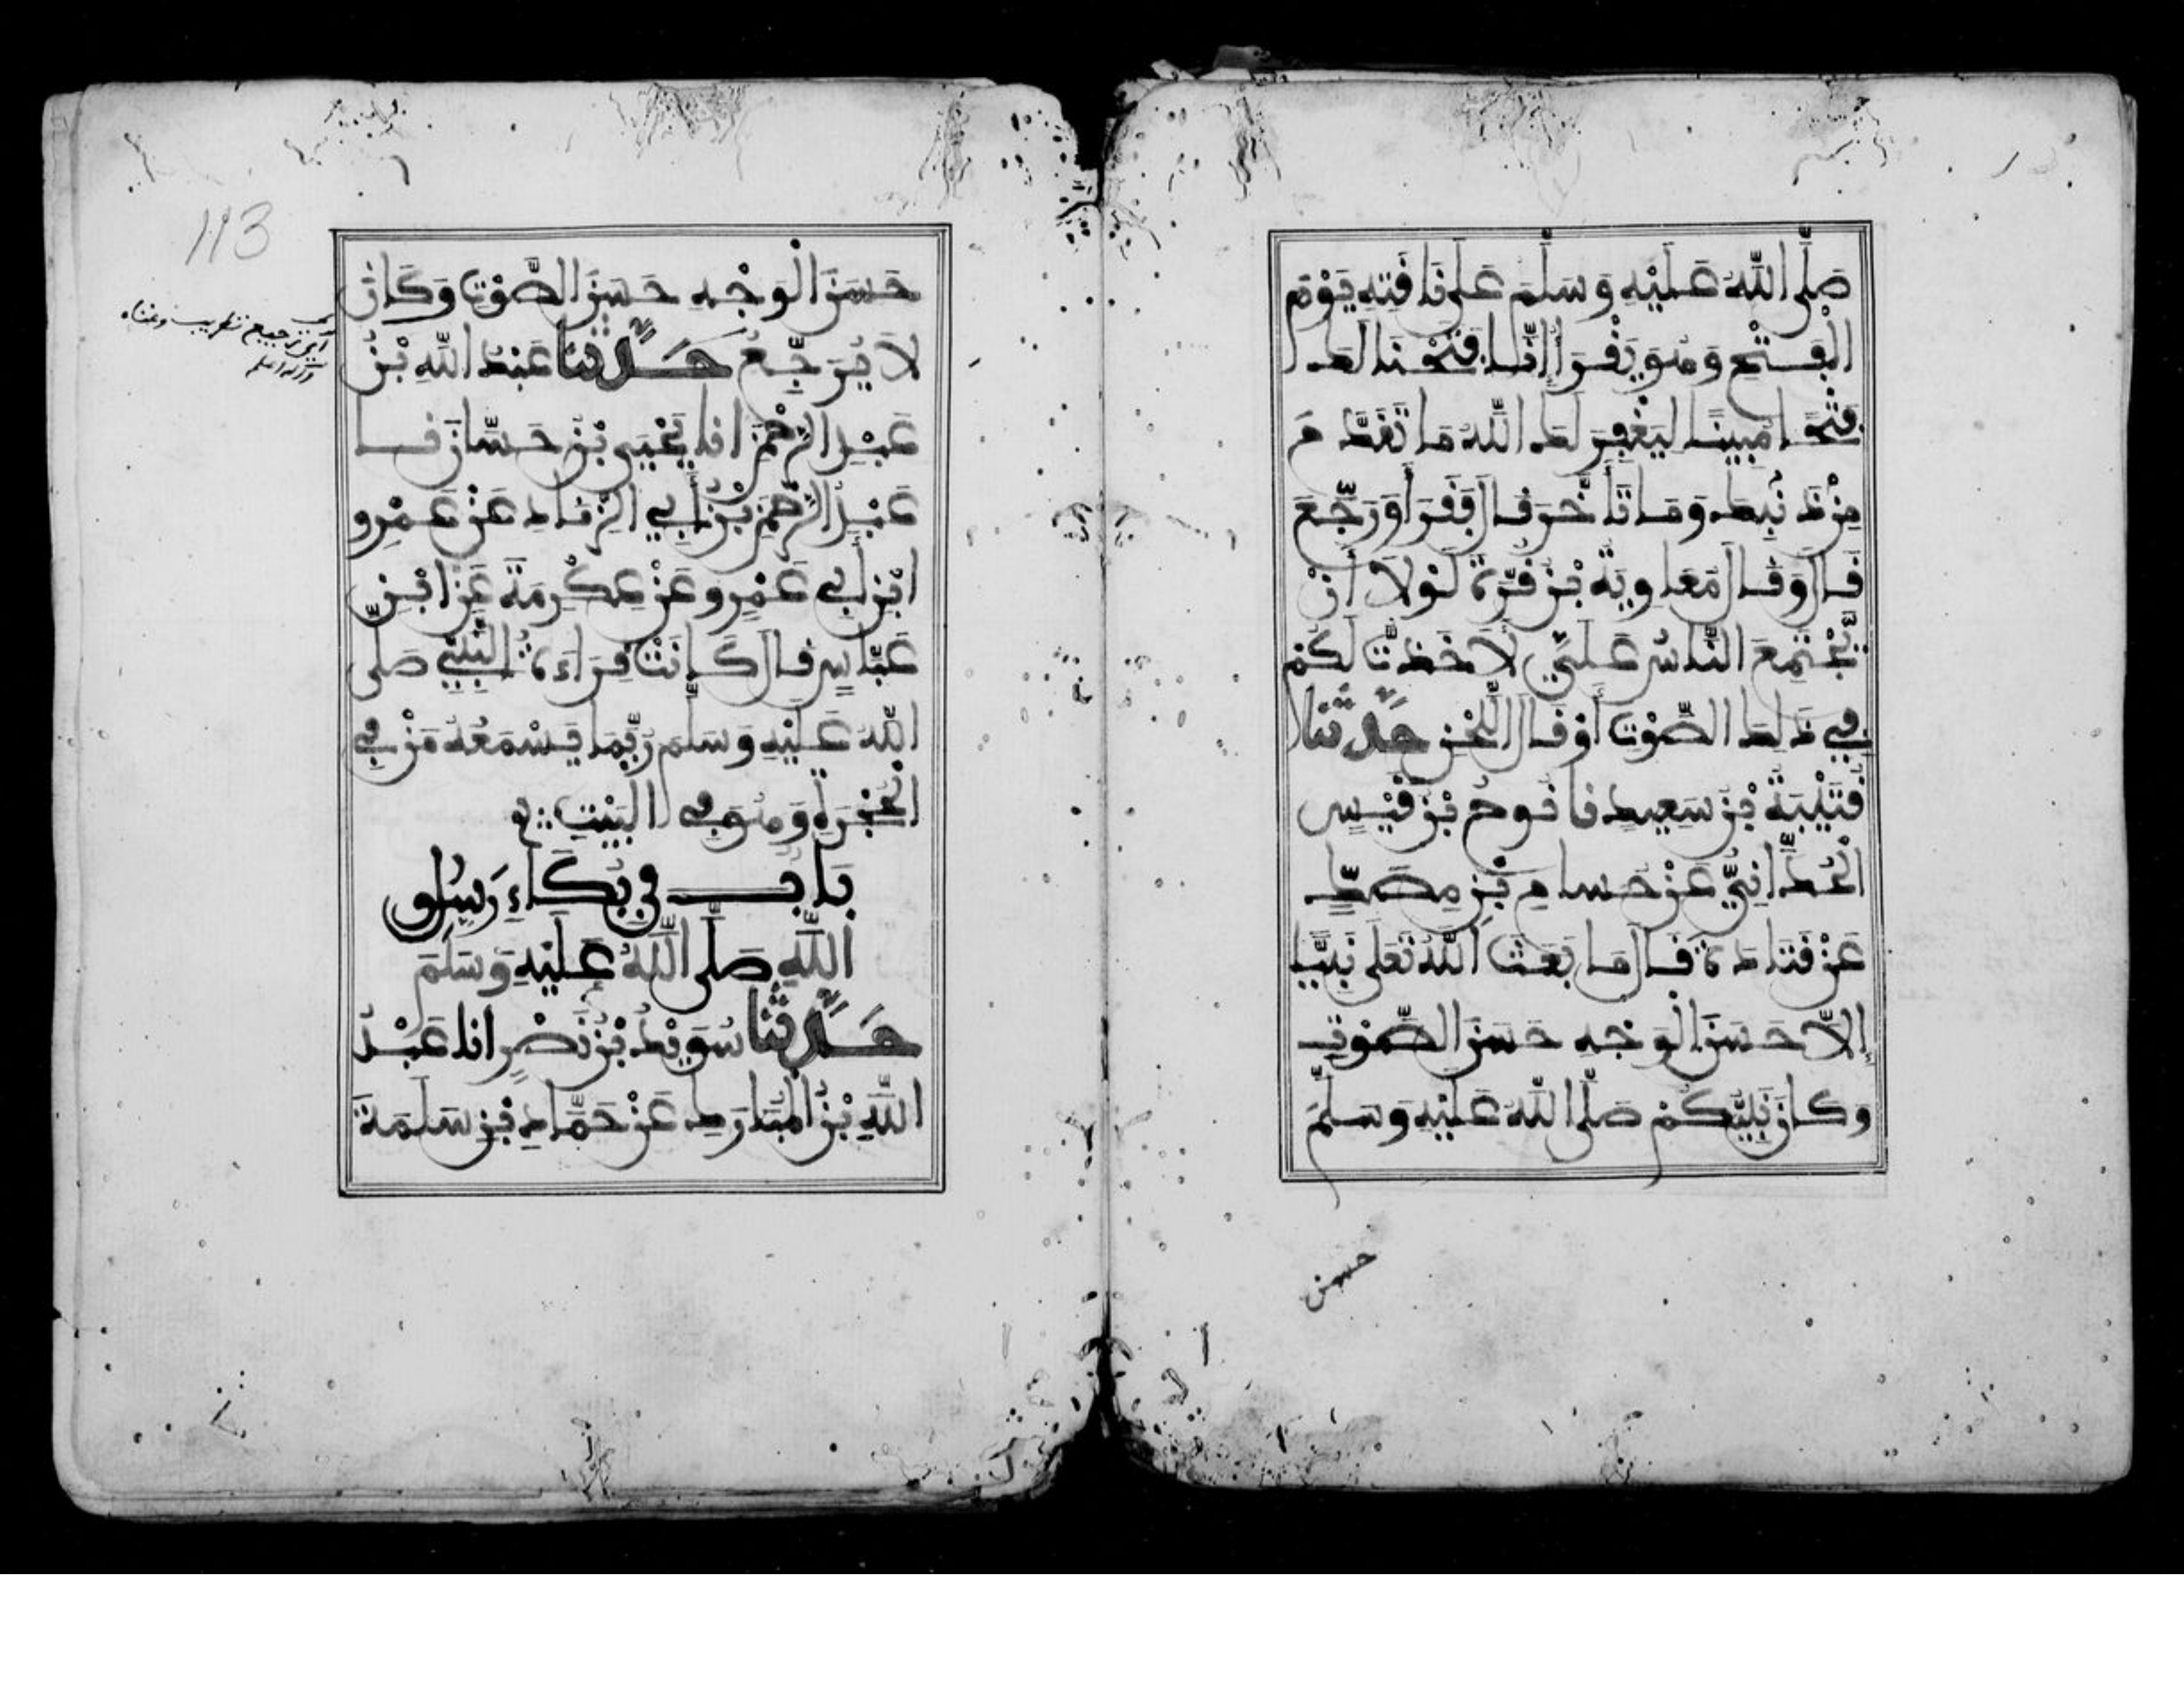 صَلَّى اللّٰهُ عَلَيْهِ وَسَلَّمَ عَلَى نَاقَتِهِ يَوْمَ
الْفَتْحِ وَهُوَ يَقْرَأُ إِنَّا فَتَحْنَا لَكَ
فَتْحًا مُبِينًا لِيَغْفِرَ لَكَ اللّٰهُ مَا تَقَدَّمَ
مِنْ ذَنْبِكَ وَمَا تَأَخَّرَ قَالَ فَقَرَأَ وَرَجَّعَ
قَالَ وَقَالَ مُعَاوِيَةُ بْنُ قُرَّةَ لَوْلَا أَنْ
يَجْتَمِعَ النَّاسُ عَلَيَّ لَأَخَذْتُ لَكُمْ
فِي ذَلِكَ الصَّوْتِ أَوْ قَالَ اللَّحْنِ حَدَّثَنَا
قُتَيْبَةُ بْنُ سَعِيدٍ نا نُوحُ بْنُ قَيْسٍ
الْحُدَّانِيُّ عَنْ حُسَامِ بْنِ مِصَكٍّ
عَنْ قَتَادَةَ قَالَ مَا بَعَثَ اللّٰهُ تَعَلَى نَبِيًّا
إِلَّا حَسَنَ الْوَجْهِ حَسَنَ الصَّوْتِ
وَكَانَ نَبِيُّكُمْ صَلَّى اللّٰهُ عَلَيْهِ وَسَلَّمَ
حسن
113
حَسَنَ الْوَجْهِ حَسَنَ الصَّوْتِ وَكَانَ
لَا يُرَجِّعُ حَدَّثَنَا عَبْدُ اللّٰهِ بْنُ
عَبْدِ الرَّحْمٰنِ انا يَحْيَى بْنُ حَسَّانَ نا
عَبْدُ الرَّحْمٰنِ بْنُ أَبِي الزِّنَادِ عَنْ عَمْرِو
ابْنِ أَبِي عَمْرٍو عَنْ عِكْرِمَةَ عَنِ ابْنِ
عَبَّاسٍ قَالَ كَانَتْ قِرَاءَةُ النَّبِيِّ صَلَّى
اللّٰهُ عَلَيْهِ وَسَلَّمَ رُبَّمَا يَسْمَعُهُ مَنْ فِي
الْحُجْرَةِ وَهُوَ فِي الْبَيْتِ
بَابٌ فِي بُكَاءِ رَسُولِ
اللّٰهِ صَلَّى اللّٰهُ عَلَيْهِ وَسَلَّمَ
حَدَّثَنَا سُوَيْدُ بْنُ نَصْرٍ انا عَبْدُ
اللّٰهِ بْنُ الْمُبَارَكِ عَنْ حَمَّادِ بْنِ سَلَمَةَ
اى ترجيع تطريب وغناء
والله اعلم